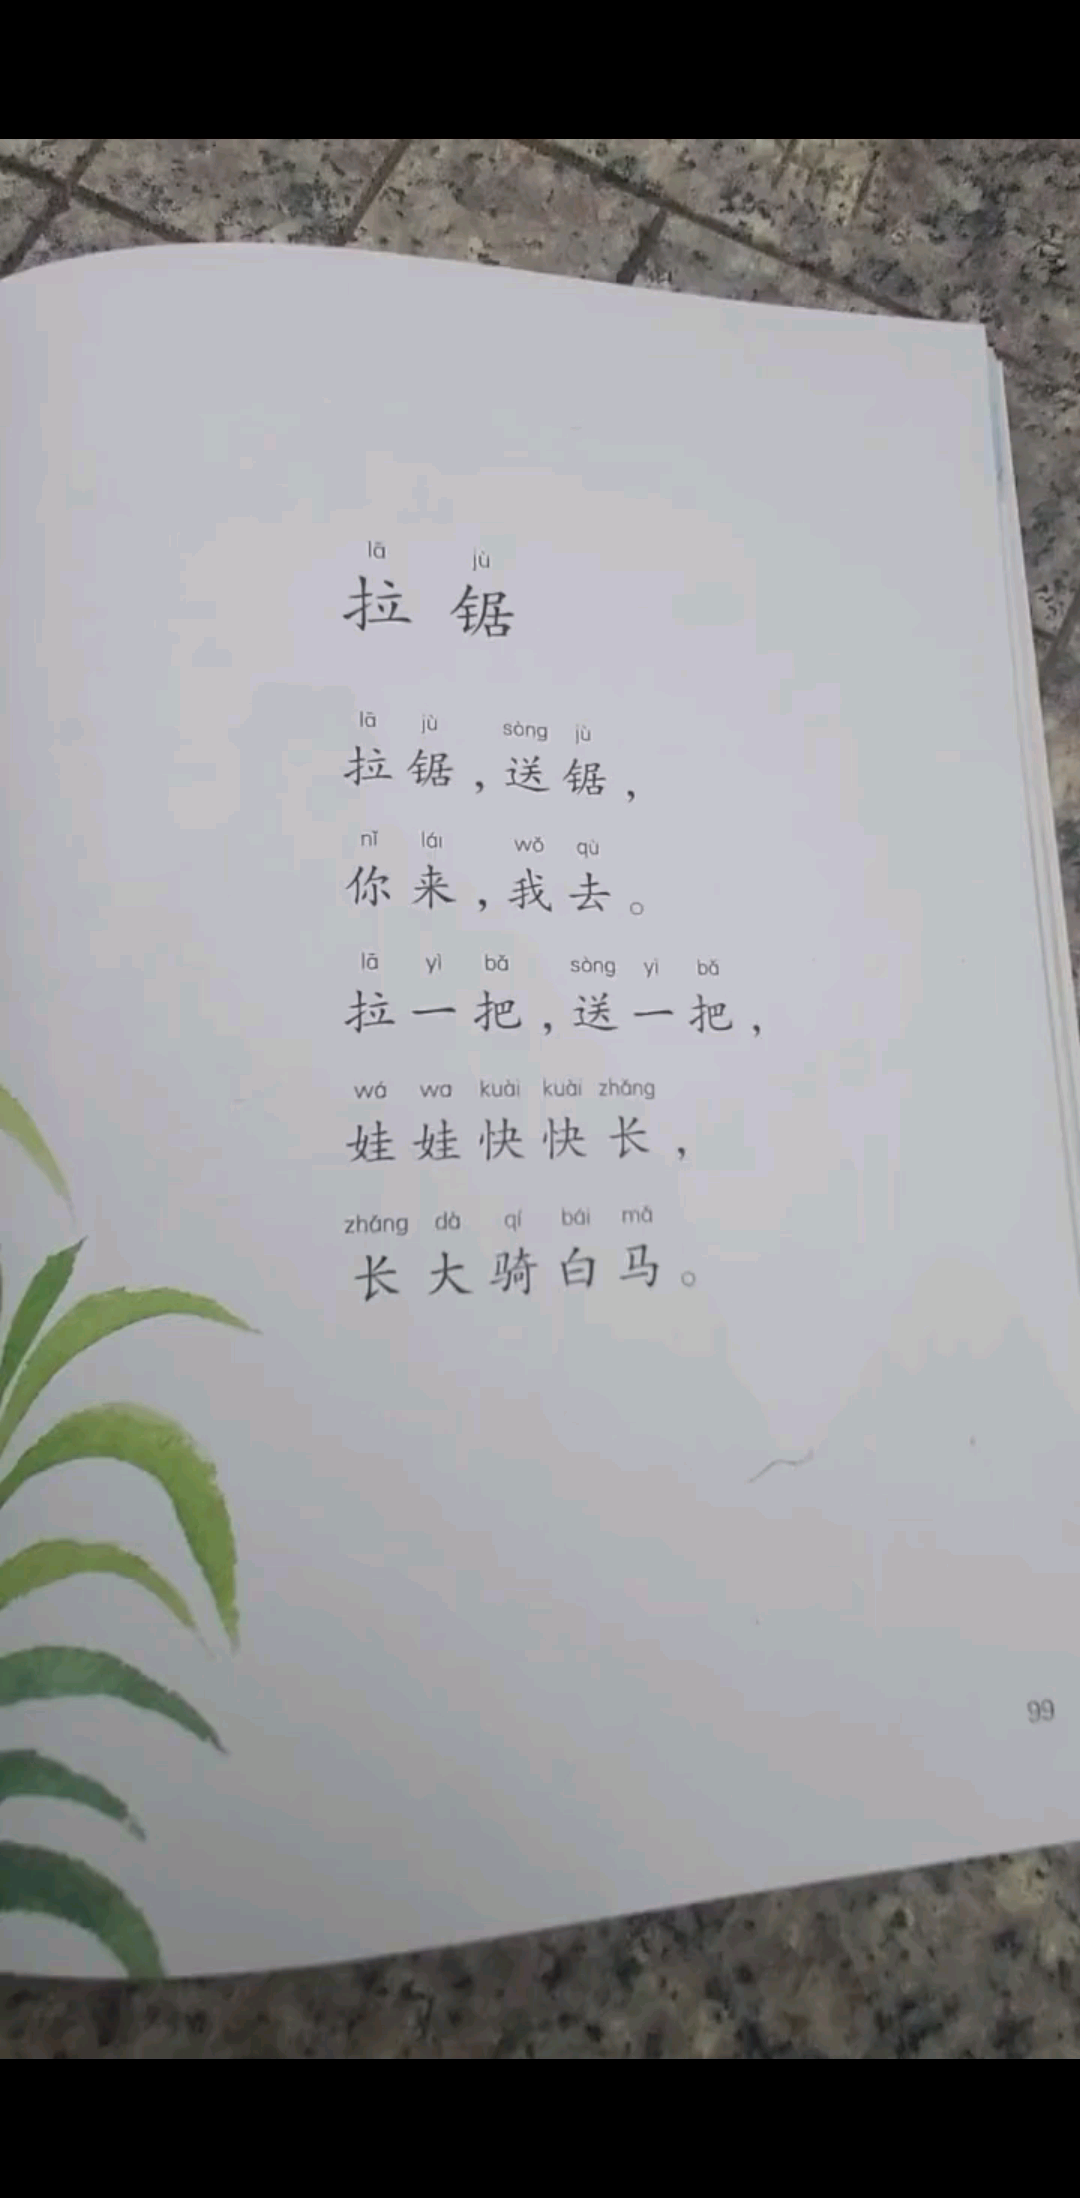 lā jù
拉锯
lā jù sòng jù
拉锯，送锯，
nǐ lái wǒ qù
你来，我去。
lā yì bǎ sòng yì bǎ
拉一把，送一把，
wá wa kuài kuài zhǎng
娃娃快快长，
zhǎng dà qí bái mǎ
长大骑白马。
99